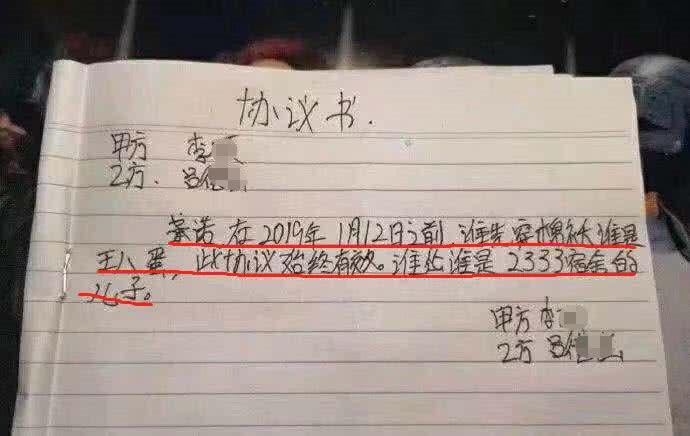 协议书.
甲方 李
2方. 吕信
承诺在2019年1月12日之前 谁先穿棉袄谁是
王八蛋, 此协议始终有效。谁让谁是2333宿舍的
儿子。
甲方 李
2方 吕信